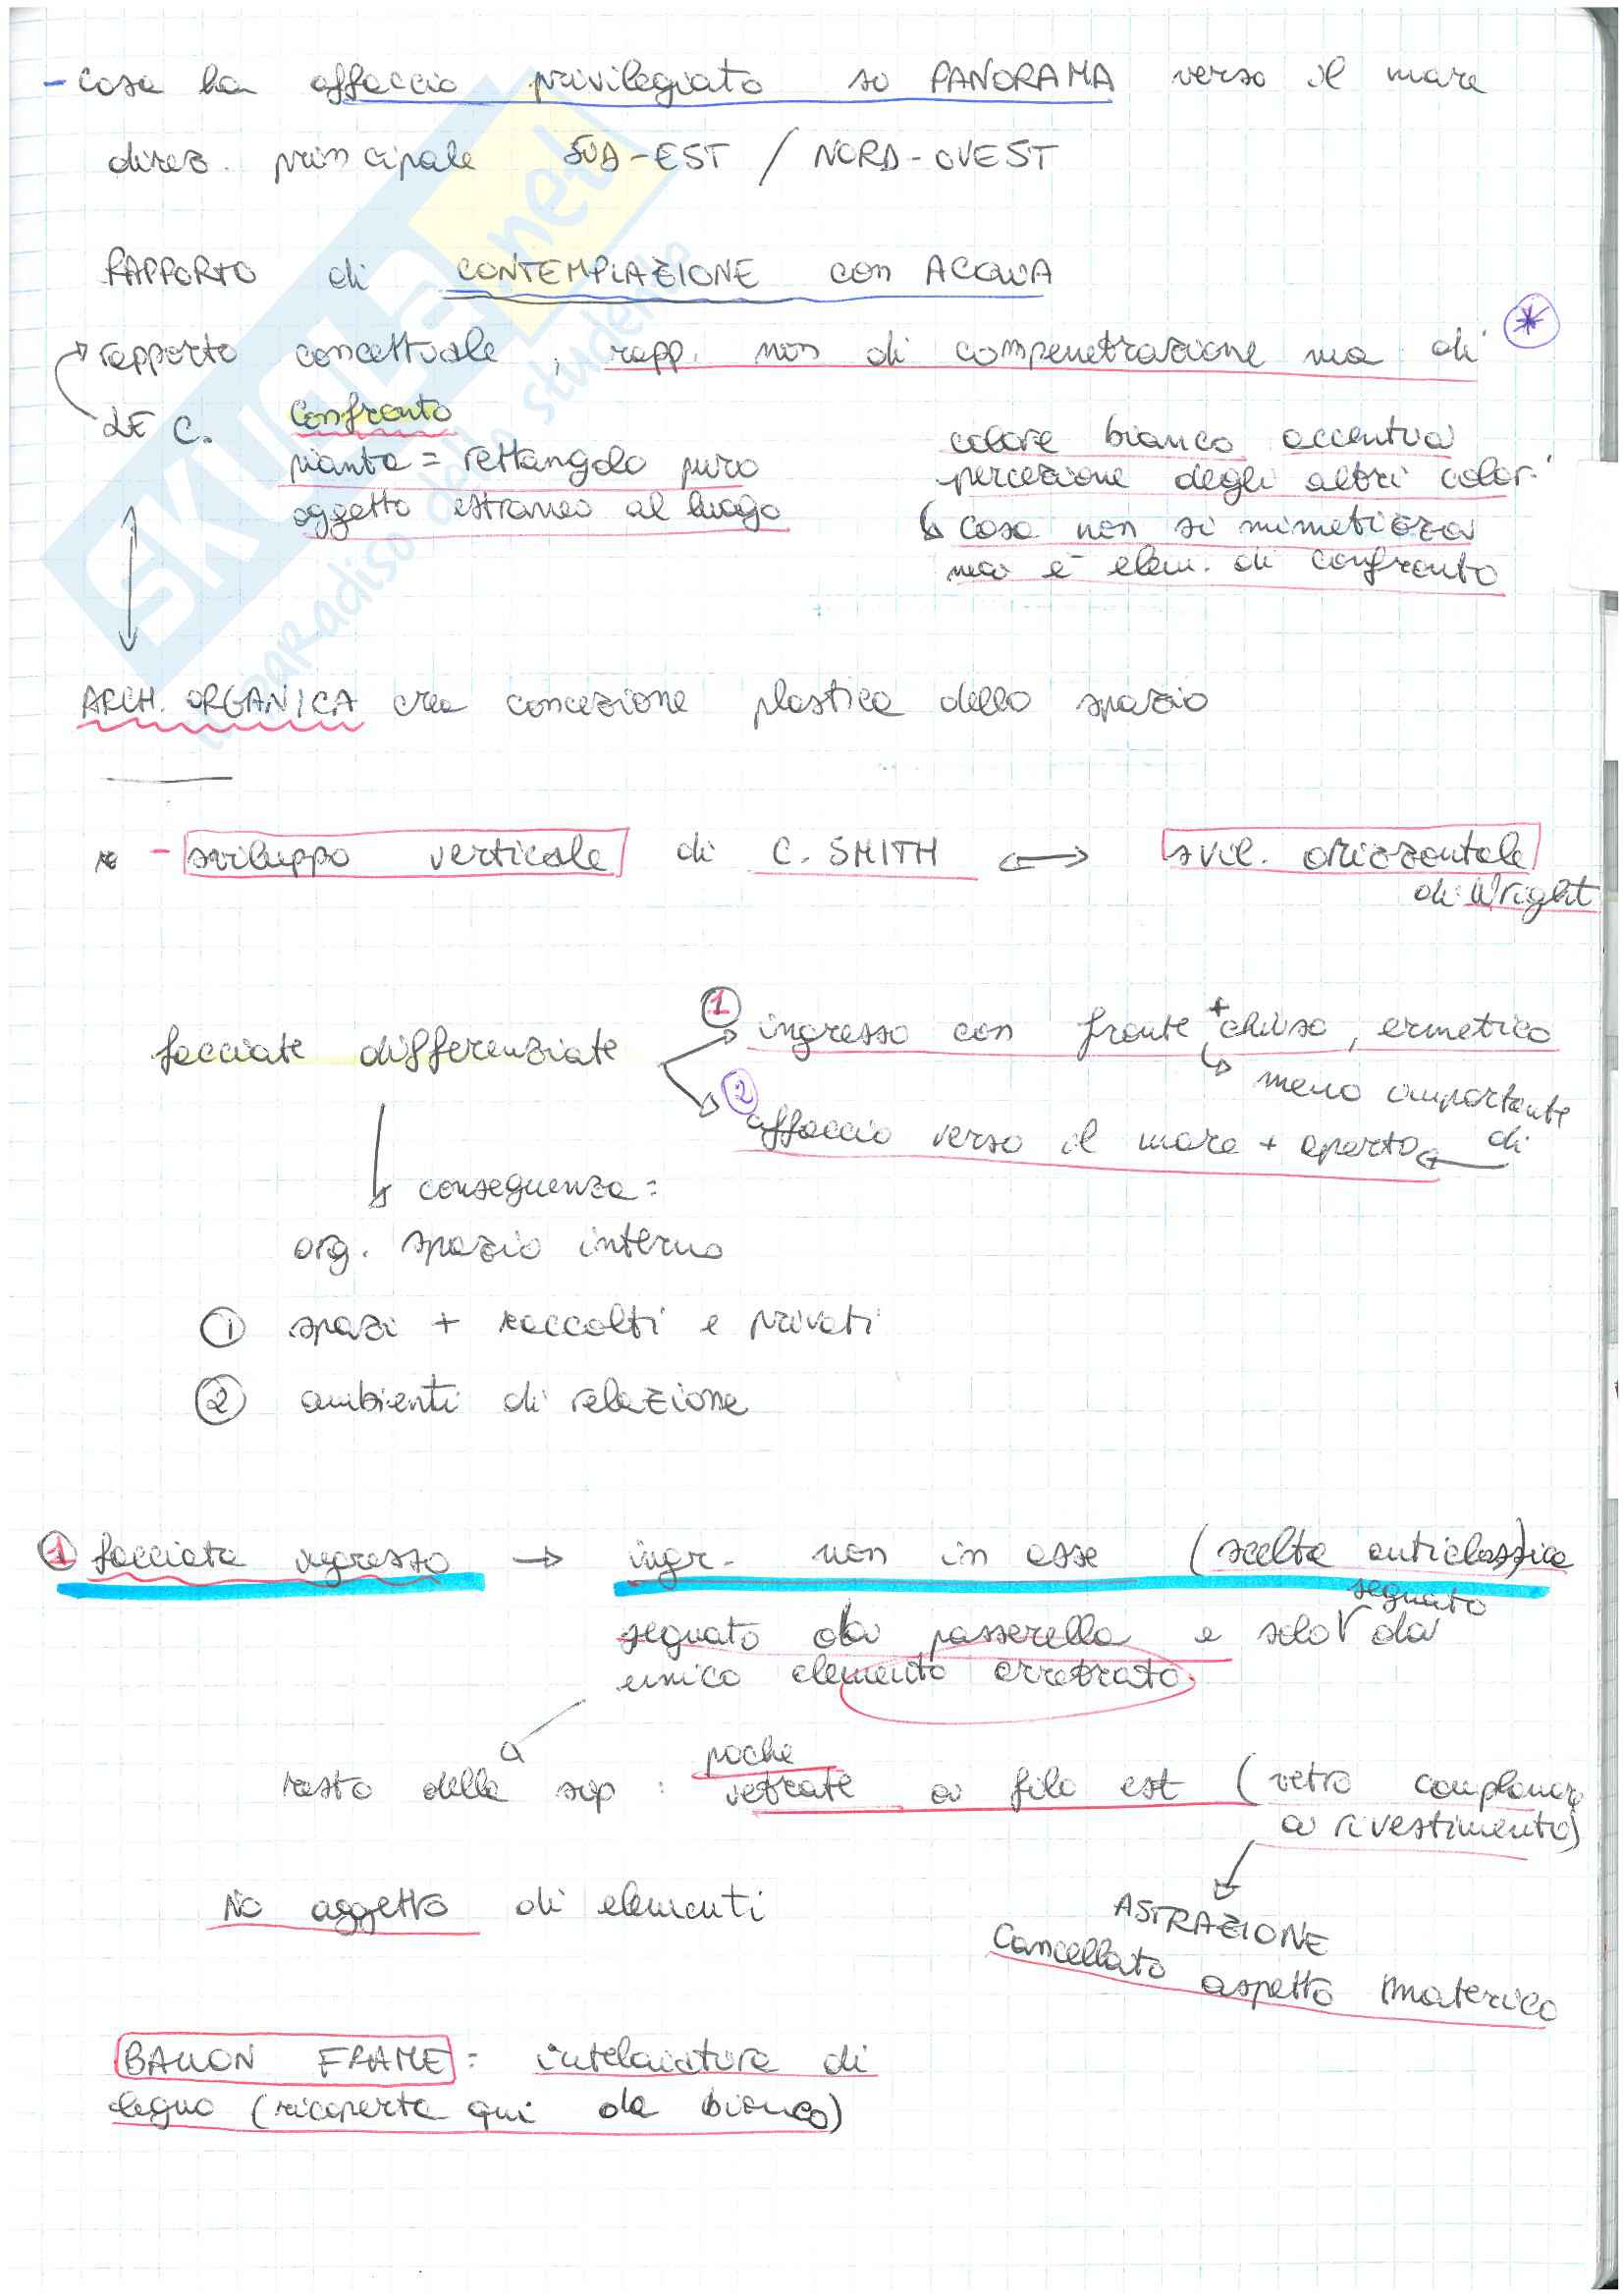 - casa ha affaccio privilegiato su PANORAMA verso il mare
direz. principale SUD-EST / NORD-OVEST
RAPPORTO di CONTEMPLAZIONE con ACQUA
rapporto concettuale, rapp. non di compenetrazione ma di *
LE C. confronto
pianta = rettangolo puro
oggetto estraneo al luogo
colore bianco accentua
percezione degli altri colori
↳ casa non si mimetizza
ma è elem. di confronto
ARCH. ORGANICA crea concezione plastica dello spazio
* - sviluppo verticale di C. SMITH ↔ svil. orizzontale
di Wright
facciate differenziate
① ingresso con fronte + chiuso, ermetico
↳ meno importante
di
② affaccio verso il mare + aperto
↳ conseguenza:
org. spazio interno
① spazi + raccolti e privati
② ambienti di relazione
① facciata ingresso → ingr. non in asse (scelta anticlassica)
segnato da passerella e solo segnato da
unico elemento arretrato
resto della sup: poche vetrate a filo est (vetro complanare
a rivestimento)
No aggetto di elementi
ASTRAZIONE
Cancellato aspetto materico
BALLON FRAME: intelaiatura di
legno (ricoperta qui da bianco)
SKUOLA.net
il paradiso dello studente